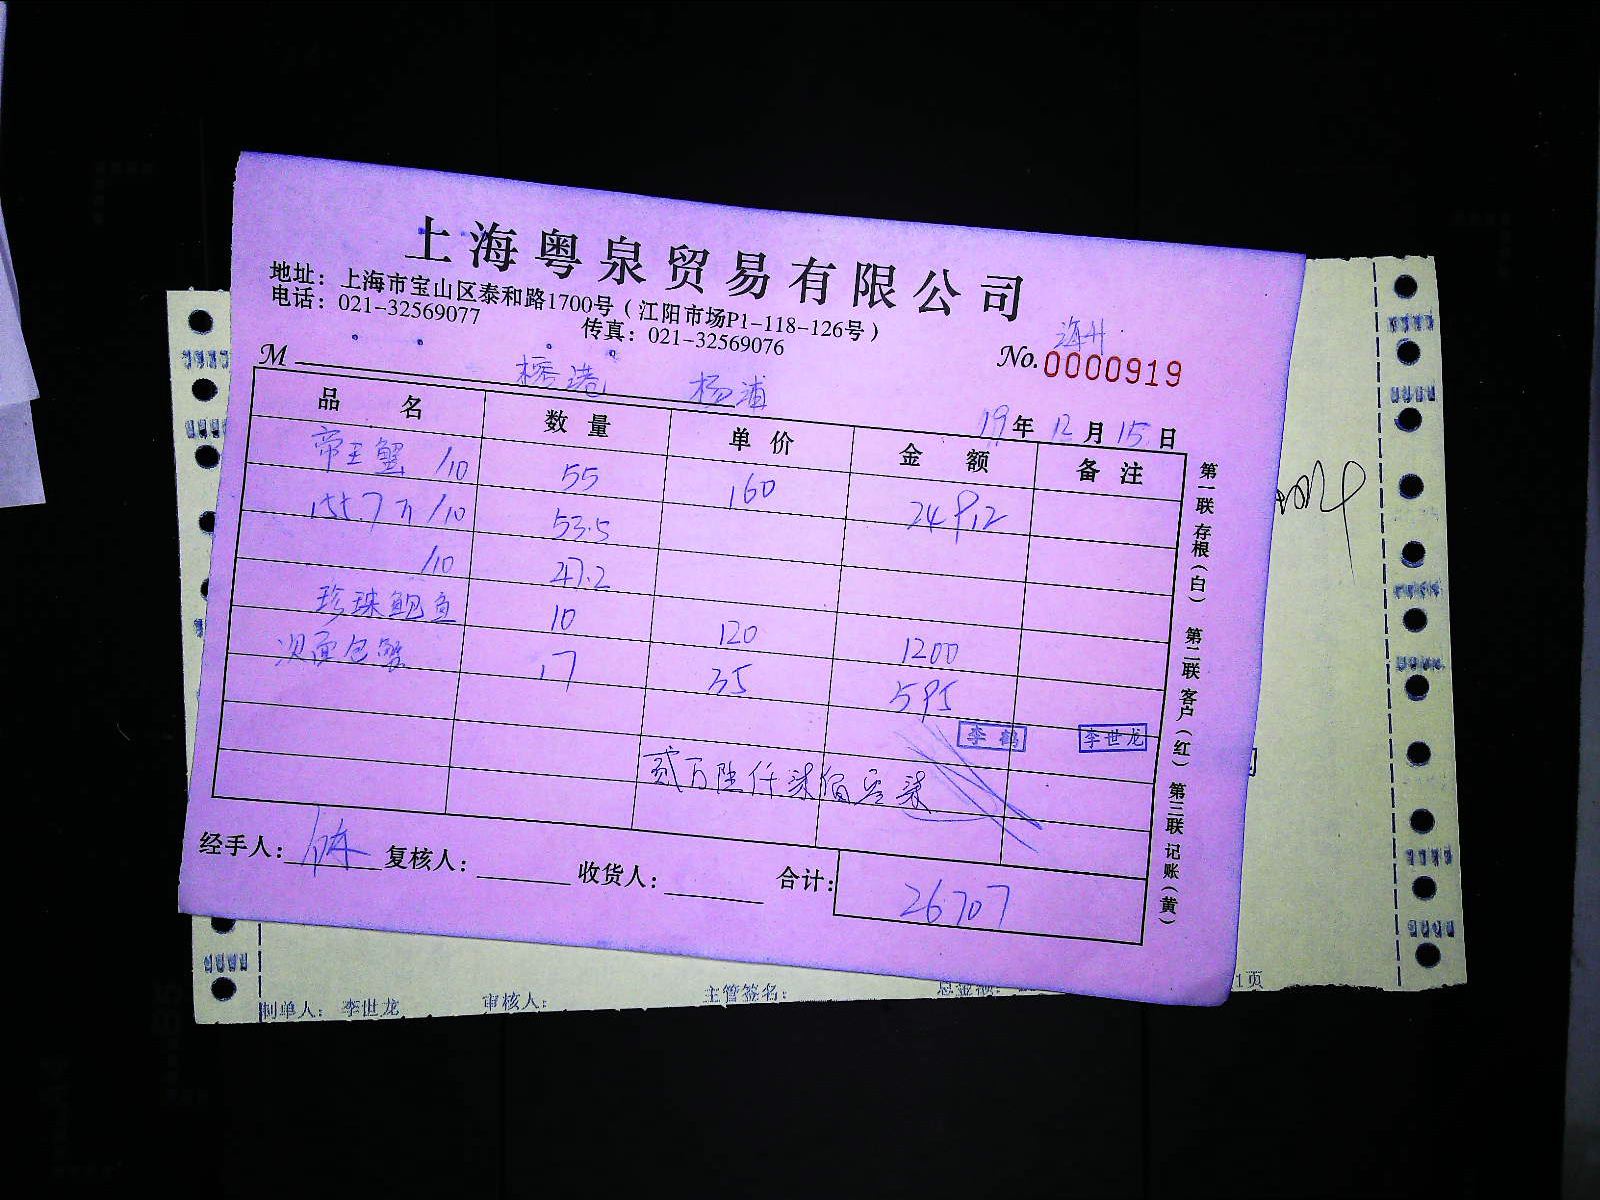 上海粤泉贸易有限公司
地址：上海市宝山区泰和路1700号（江阳市场P1-118-126号）
电话：021-32569077 传真：021-32569076
海升
M 榕港 杨浦 No. 0000919
19年12月15日
品名 数量 单价 金额 备注
帝王蟹 /10 55 160 24912
155.7斤 /10 53.5
/10 47.2
珍珠鲍鱼 10 120 1200
次面包蟹 17 35 595
李鹤 李世龙
贰万陆仟柒佰零柒
经手人： 复核人： 收货人： 合计： 26707
第一联 存根（白） 第二联 客户（红） 第三联 记账（黄）
制单人： 李世龙 审核人： 主管签名： 总金额： 1页